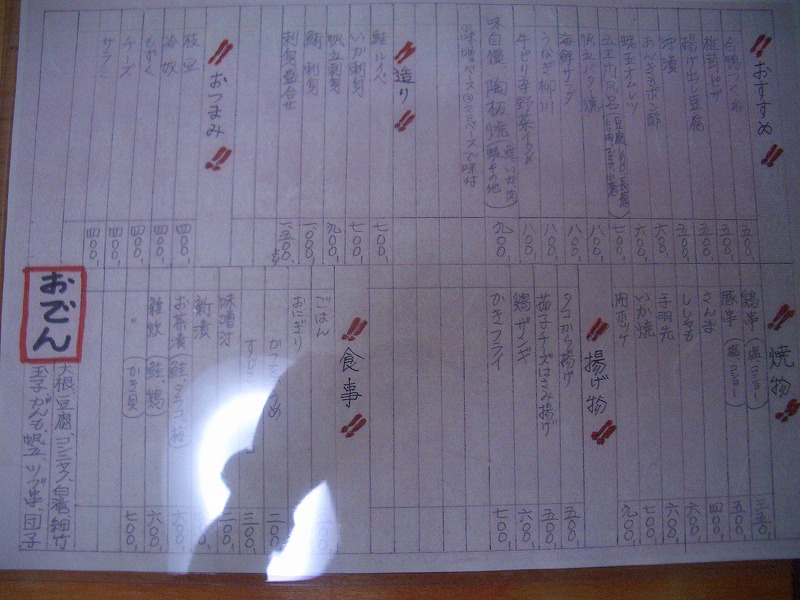 おすすめ
合鴨つくね 五〇〇、
椎茸ピザ 五〇〇、
揚げ出し豆腐 五〇〇、
沖漬 六〇〇、
あんきもポン酢 六〇〇、
帆立バター焼 八〇〇、
海鮮サラダ 八〇〇、
うなぎ柳川 八〇〇、
味自慢 陶板焼 九〇〇、
味噌ベース
造り
鮭ルイベ 七〇〇、
いか刺身 七〇〇、
帆立刺身 九〇〇、
鯛刺身 一〇〇〇、
刺身盛合せ 一五〇〇、
おつまみ
枝豆 四〇〇、
冷奴 四〇〇、
もずく 四〇〇、
チーズ 四〇〇、
サラミ 四〇〇、
焼物
鶏串(塩、コショー) 三五〇、
豚串(塩、コショー) 五〇〇、
さんま 四〇〇、
ししゃも 六〇〇、
手羽先 六〇〇、
いか焼 七〇〇、
開ホッケ 九〇〇、
揚げ物
タコから揚げ 五〇〇、
茄子チーズはさみ揚げ 五〇〇、
鶏ザンギ 六〇〇、
かきフライ 七〇〇、
食事
ごはん
おにぎり
かつお、うめ 二〇〇、
すじこ 三〇〇、
味噌汁 二〇〇、
新漬
お茶漬(鮭、タラコ、梅) 六〇〇、
雑炊 鮭、鶏 六〇〇、
〃 (かき、貝) 七〇〇、
おでん
大根、豆腐、コンニャク、白滝、細竹
玉子、がんも、帆立、ツブ串、団子